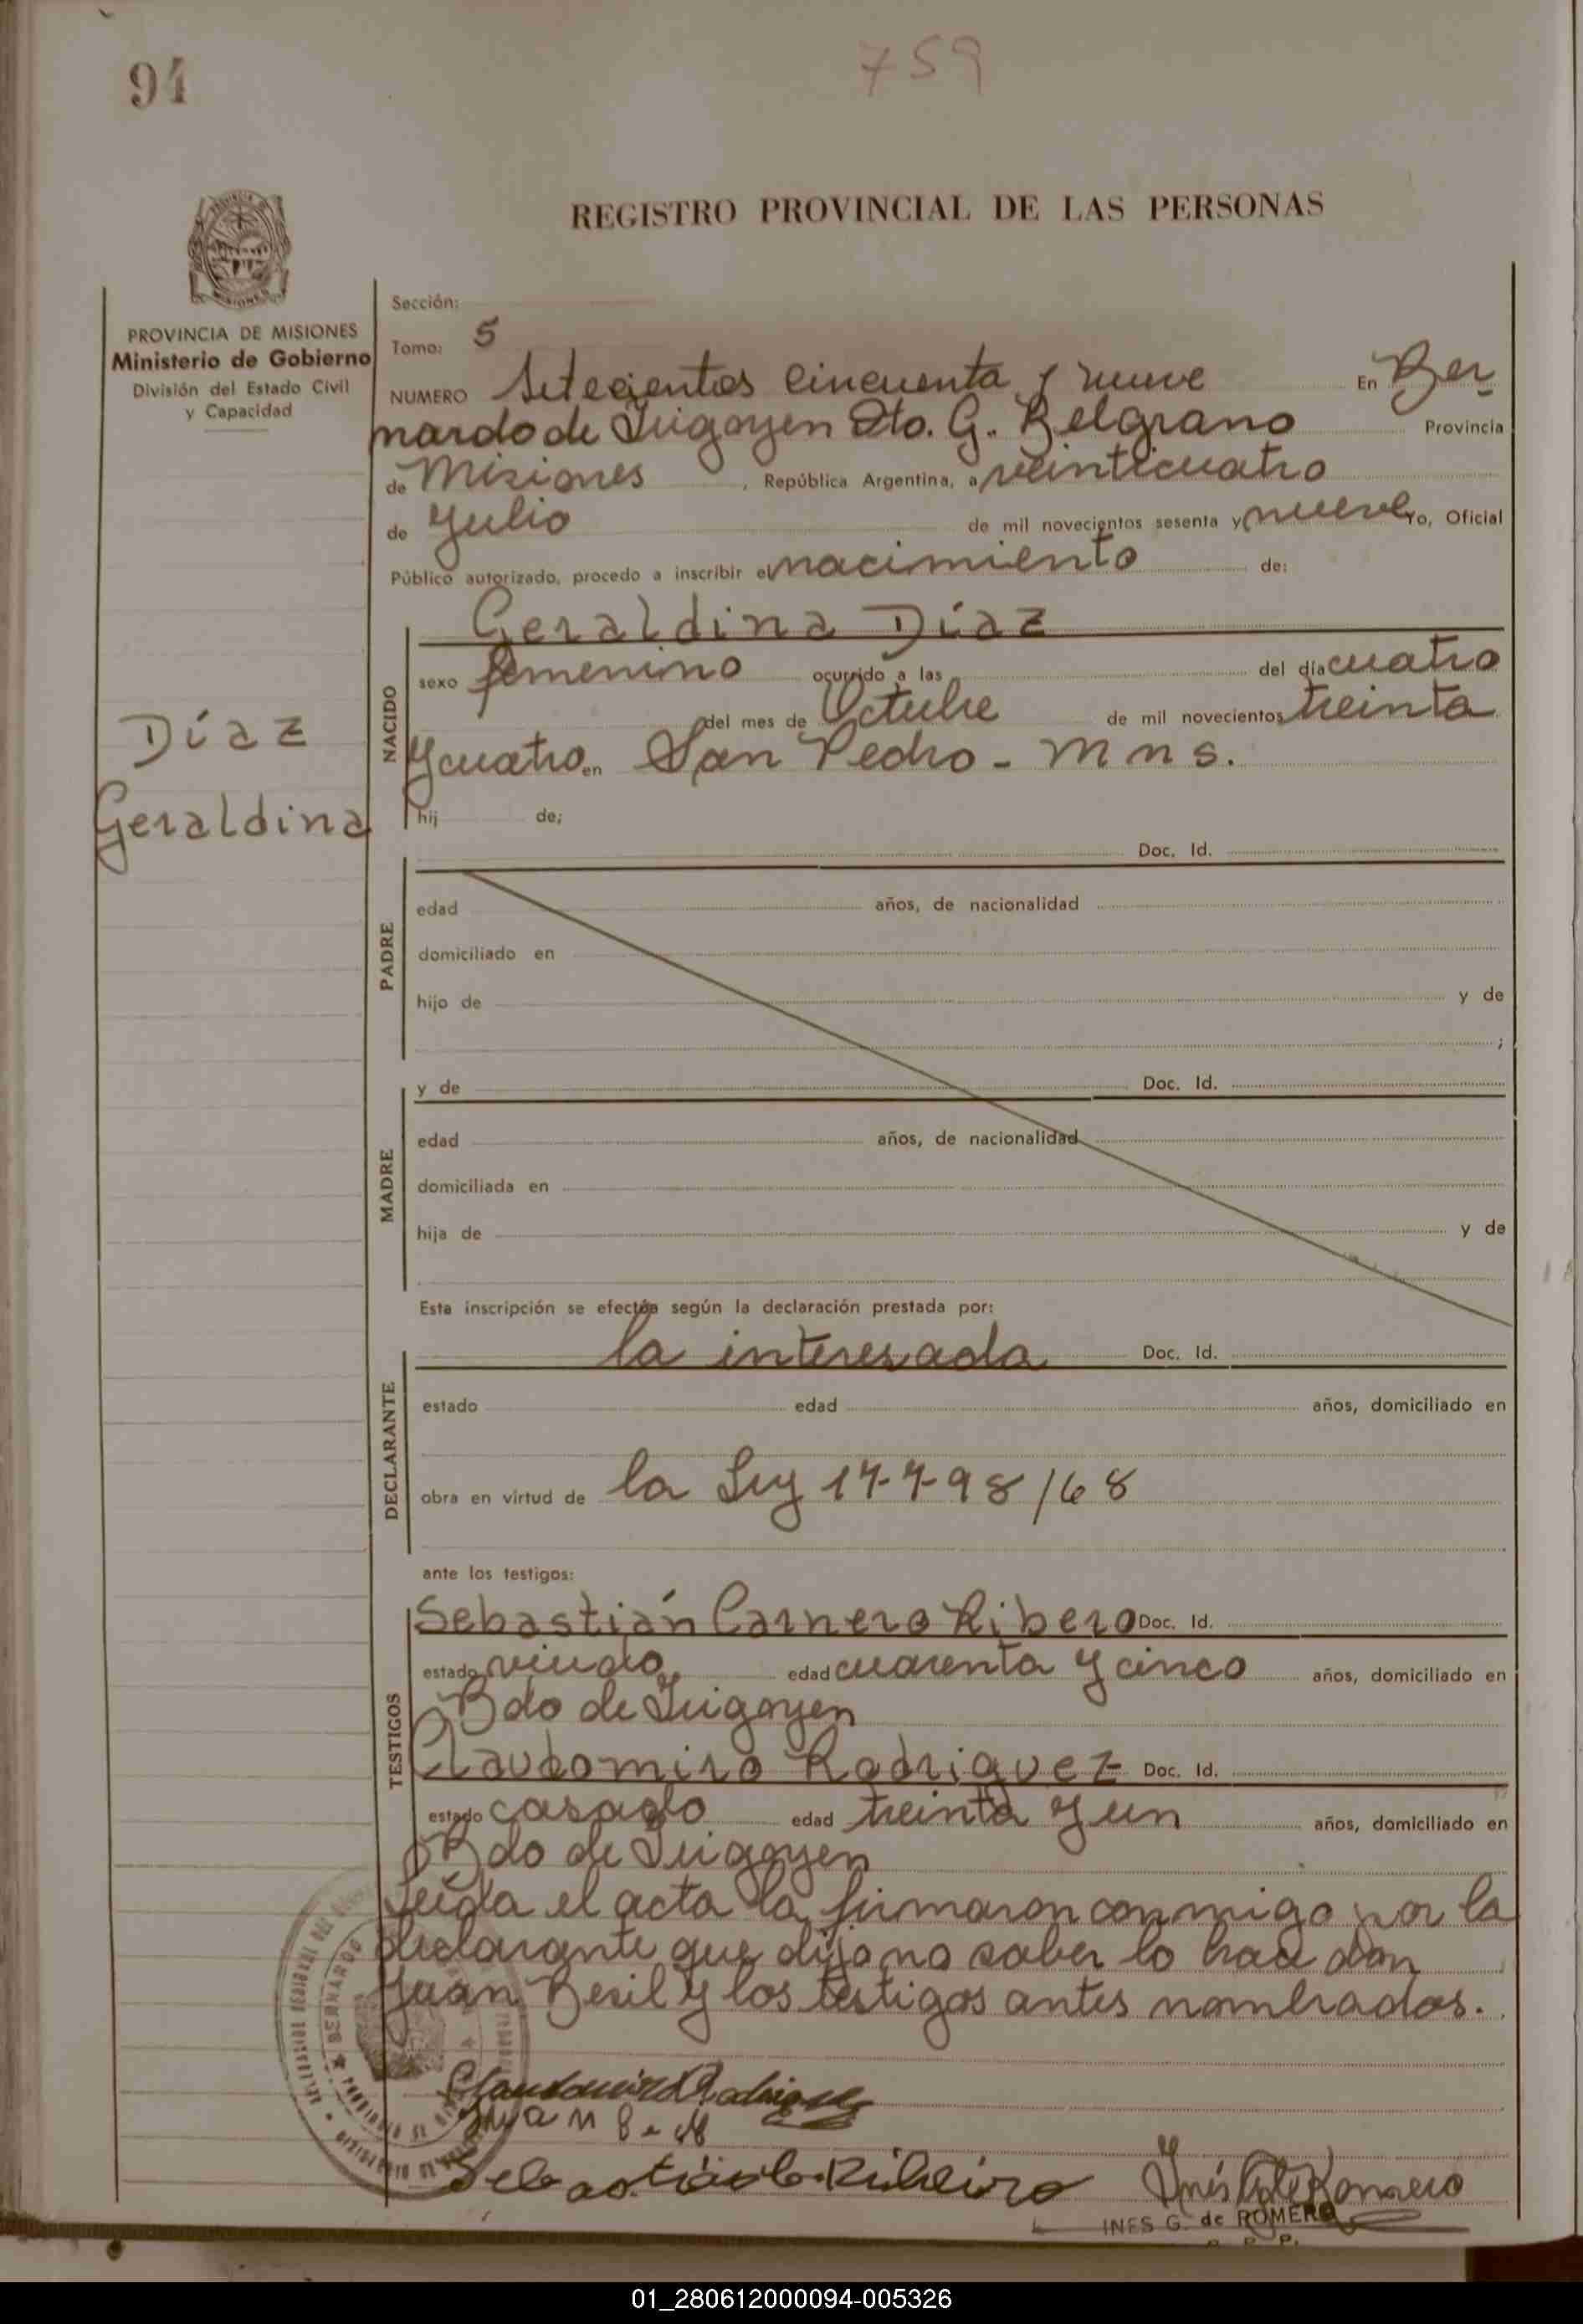 94
759
REGISTRO PROVINCIAL DE LAS PERSONAS
PROVINCIA DE MISIONES
Ministerio de Gobierno
División del Estado Civil
y Capacidad
Díaz
Geraldina
Sección:
Tomo: 5
NUMERO Setecientos cincuenta y nueve En Ber
nardo de Irigoyen Dto. G. Belgrano Provincia
de Misiones, República Argentina, a veinticuatro
de Julio de mil novecientos sesenta y nueve Yo, Oficial
Público autorizado, procedo a inscribir el nacimiento de:
Geraldina Díaz
NACIDO
sexo femenino ocurrido a las del día cuatro
del mes de Octubre de mil novecientos treinta
y cuatro en San Pedro - Mns.
hij de;
Doc. Id.
PADRE
edad años, de nacionalidad
domiciliado en
hijo de y de
;
y de Doc. Id.
MADRE
edad años, de nacionalidad
domiciliada en
hija de y de
Esta inscripción se efectúa según la declaración prestada por:
la interesada Doc. Id.
DECLARANTE
estado edad años, domiciliado en
obra en virtud de la Ley 17.798/68
ante los testigos:
TESTIGOS
Sebastián Carnero Ribero Doc. Id.
estado viudo edad cuarenta y cinco años, domiciliado en
Bdo de Irigoyen
Claudomiro Rodriguez Doc. Id.
estado casado edad treinta y un años, domiciliado en
Bdo de Irigoyen
Leída el acta la firmaron conmigo por la
declarante que dijo no saber lo hace don
Juan Besil y los testigos antes nombrados.
Claudomiro Rodriguez
Juan
INES G. de ROMERO
01_280612000094-005326